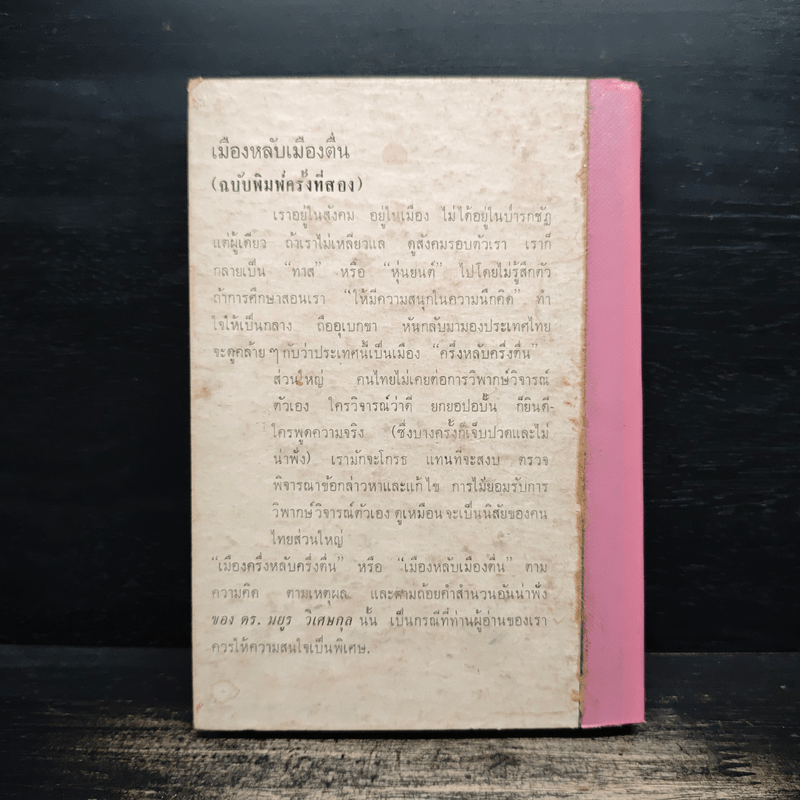 เมืองหลับเมืองตื่น
(ฉบับพิมพ์ครั้งที่สอง)
เราอยู่ในสังคม อยู่ในเมือง ไม่ได้อยู่ในป่ารกชัฏ
แต่ผู้เดียว ถ้าเราไม่เหลียวแล ดูสังคมรอบตัวเรา เราก็
กลายเป็น “ทาส” หรือ “หุ่นยนต์” ไปโดยไม่รู้สึกตัว
ถ้าการศึกษาสอนเรา “ให้มีความสนุกในความนึกคิด” ทำ
ใจให้เป็นกลาง ถืออุเบกขา หันกลับมามองประเทศไทย
จะดูคล้าย ๆ กับว่าประเทศนี้เป็นเมือง “ครึ่งหลับครึ่งตื่น”
ส่วนใหญ่ คนไทยไม่เคยต่อการวิพากษ์วิจารณ์
ตัวเอง ใครวิจารณ์ว่าดี ยกยอปอปั้น ก็ยินดี-
ใครพูดความจริง (ซึ่งบางครั้งก็เจ็บปวดและไม่
น่าฟัง) เรามักจะโกรธ แทนที่จะสงบ ตรวจ
พิจารณาข้อกล่าวหาและแก้ไข การไม่ยอมรับการ
วิพากษ์วิจารณ์ตัวเอง ดูเหมือนจะเป็นนิสัยของคน
ไทยส่วนใหญ่
“เมืองครึ่งหลับครึ่งตื่น” หรือ “เมืองหลับเมืองตื่น” ตาม
ความคิด ตามเหตุผล และตามถ้อยคำสำนวนอันน่าฟัง
ของ ดร. มยูร วิเศษกุล นั้น เป็นกรณีที่ท่านผู้อ่านของเรา
ควรให้ความสนใจเป็นพิเศษ.